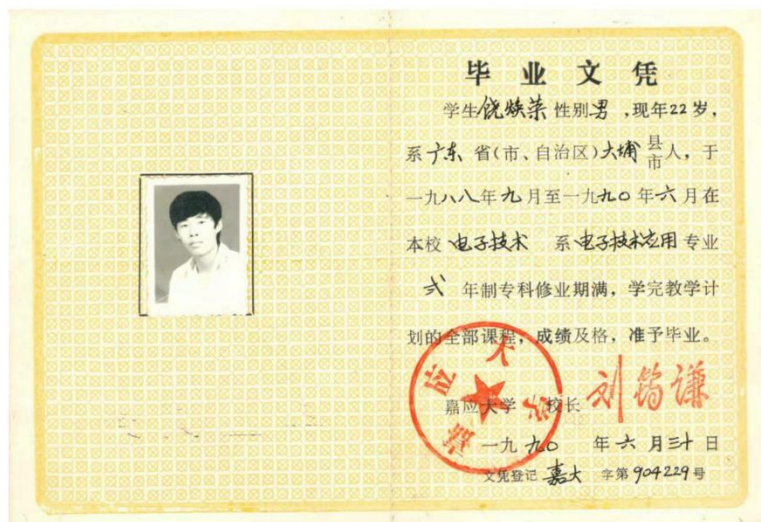 毕业文凭
学生饶焕荣性别男,现年22岁,
系广东省(市、自治区)大埔县市人,于
一九八八年九月至一九九〇年六月在
本校电子技术 系电子技术应用专业
弍 年制专科修业期满,学完教学计
划的全部课程,成绩及格,准予毕业。
嘉应大学 校长 刘筠谦
嘉应大学
一九九〇 年六月三十日
文凭登记 嘉大 字第904229号